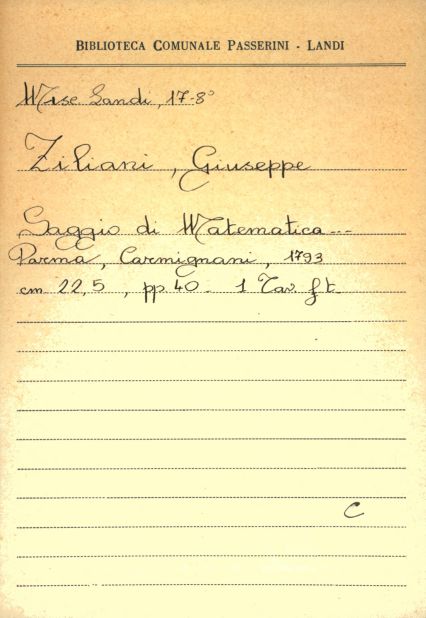 BIBLIOTECA COMUNALE PASSERINI - LANDI
Misc Landi, 17-8°
Ziliani, Giuseppe
Saggio di Matematica ---
Parma, Carmignani, 1793
cm 22,5, pp 40 - 1 Tav. f t.
C